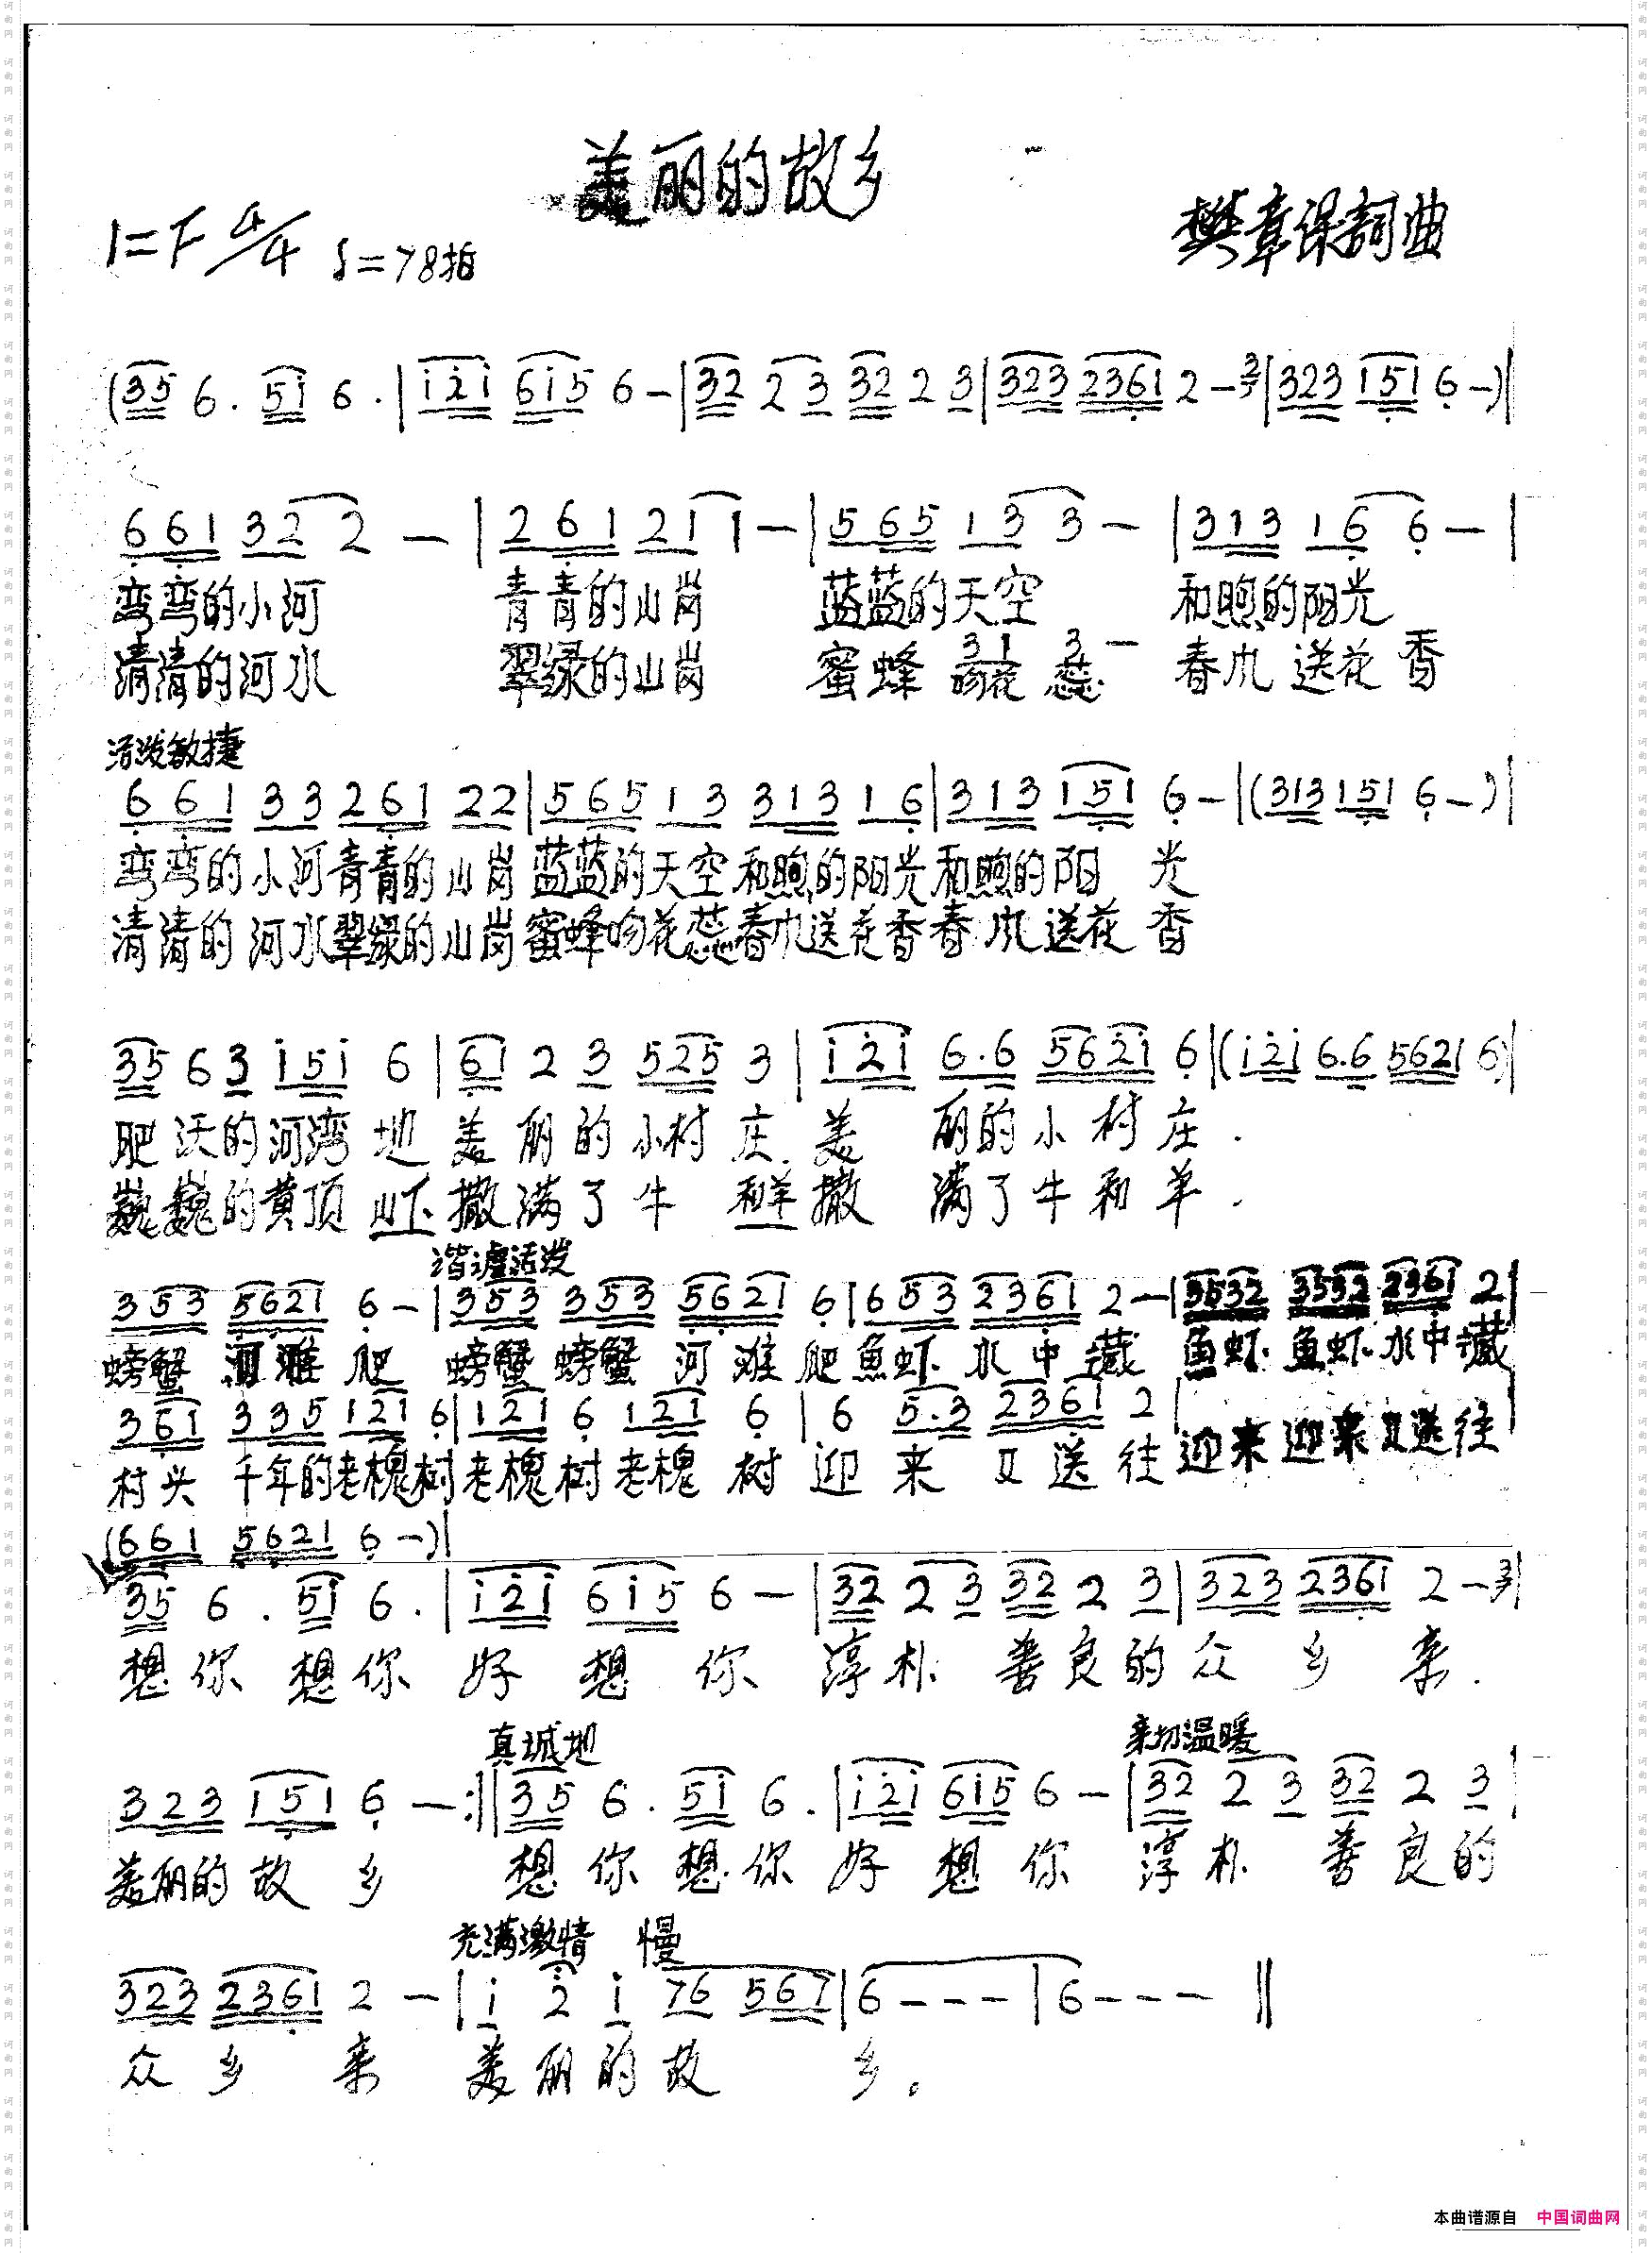 美丽的故乡
1=F 4/4 ♩=78拍
樊章保詞曲
(35 6. 5i 6. | i2i 6i5 6 - | 32 2 3 32 2 3 | 323 2361 2 - 3 | 323 151 6 -) ‖
6 61 32 2 - | 2 61 21 1 - | 5 65 1 3 3 - | 313 16 6 - |
弯弯的小河 青青的山岗 蓝蓝的天空 和煦的阳光
3 1 3 -
清清的河水 翠绿的山岗 蜜蜂吻花蕊 春风送花香
活泼敏捷
6 61 33 261 22 | 565 13 313 16 | 313 151 6 - | (313 151 6 -) |
弯弯的小河青青的山岗蓝蓝的天空和煦的阳光和煦的阳光
清清的河水翠绿的山岗蜜蜂吻花蕊春风送花香春风送花香
35 6 3 i5i 6 | 61 2 3 525 3 | i2i 6.6 562i 6 | (i2i 6.6 5621 6) |
肥沃的河湾地 美丽的小村庄. 美丽的小村庄.
巍巍的黄顶山下撒满了牛和羊撒满了牛和羊.
谐谑活泼
353 5621 6 - | 353 353 5621 6 | 6 53 2361 2 - | 3532 3532 2361 2 |
螃蟹河滩爬 螃蟹螃蟹河滩爬鱼虾水中藏 鱼虾鱼虾水中藏
361 335 121 6 | 121 6 121 6 | 6 5.3 2361 2 |
村头千年的老槐树老槐树老槐树迎来又送往迎来迎来又送往
(661 5621 6 -) |
35 6. 5i 6. | i2i 6i5 6 - | 32 2 3 32 2 3 | 323 2361 2 - 3 |
想你想你好想你淳朴善良的众乡亲.
真诚地 亲切温暖
323 151 6 - :‖ 35 6. 5i 6. | i2i 6i5 6 - | 32 2 3 32 2 3 |
美丽的故乡 想你想你好想你淳朴善良的
充满激情 慢
323 2361 2 - | i 2 i 76 567 | 6 - - - | 6 - - - ‖
众乡亲 美丽的故乡。
本曲谱源自 中国词曲网